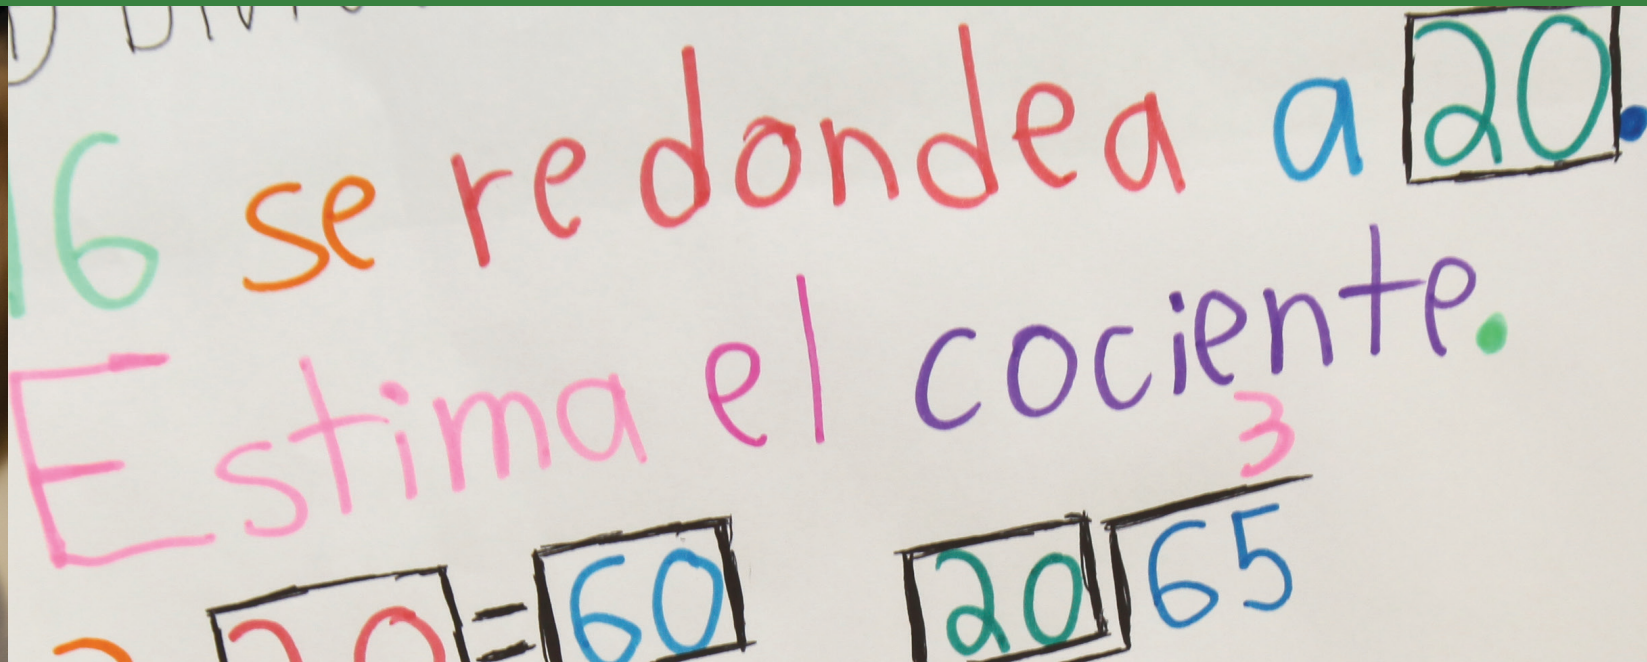 16 se redondea a 20.
Estima el cociente.
3
20 = 60 20 65